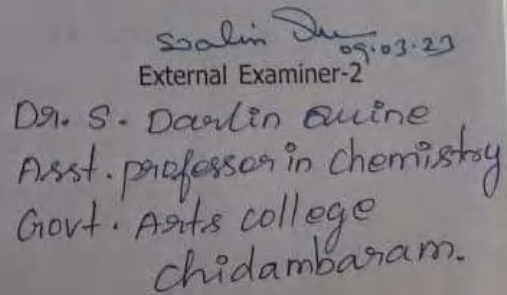 09.03.23
External Examiner-2
Dr. S. Darlin Quine
Asst. professor in chemistry
Govt. Arts college
chidambaram.